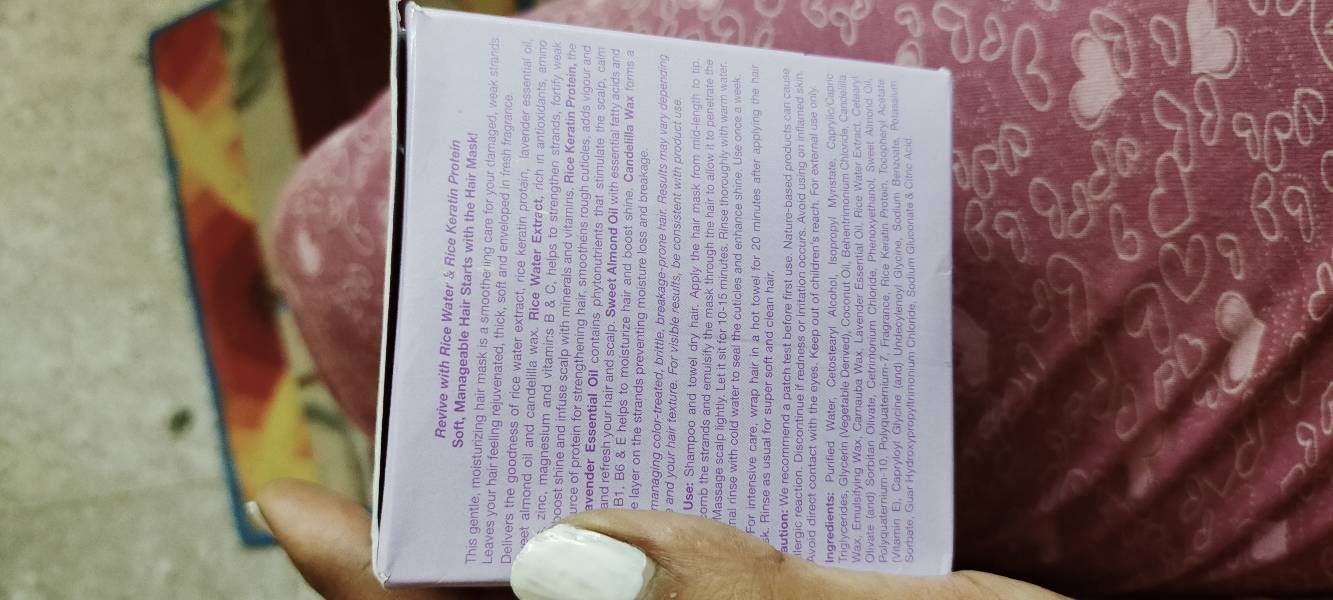 Revive with Rice Water & Rice Keratin Protein
Soft, Manageable Hair Starts with the Hair Mask!
This gentle, moisturizing hair mask is a smoothening care for your damaged, weak strands.
Leaves your hair feeling rejuvenated, thick, soft and enveloped in fresh fragrance.
Delivers the goodness of rice water extract, rice keratin protein, lavender essential oil,
eet almond oil and candelilla wax. Rice Water Extract, rich in antioxidants, amino
zinc, magnesium and vitamins B & C, helps to strengthen strands, fortify weak
oost shine and infuse scalp with minerals and vitamins. Rice Keratin Protein, the
urce of protein for strengthening hair, smoothens rough cuticles, adds vigour and
avender Essential Oil contains phytonutrients that stimulate the scalp, calm
and refresh your hair and scalp. Sweet Almond Oil with essential fatty acids and
B1, B6 & E helps to moisturize hair and boost shine. Candelilla Wax forms a
e layer on the strands preventing moisture loss and breakage.
managing color-treated, brittle, breakage-prone hair. Results may vary depending
e and your hair texture. For visible results, be consistent with product use.
Use: Shampoo and towel dry hair. Apply the hair mask from mid-length to tip.
comb the strands and emulsify the mask through the hair to allow it to penetrate the
Massage scalp lightly. Let it sit for 10-15 minutes. Rinse thoroughly with warm water.
nal rinse with cold water to seal the cuticles and enhance shine. Use once a week.
For intensive care, wrap hair in a hot towel for 20 minutes after applying the hair
k. Rinse as usual for super soft and clean hair.
aution: We recommend a patch test before first use. Nature-based products can cause
llergic reaction. Discontinue if redness or irritation occurs. Avoid using on inflamed skin.
Avoid direct contact with the eyes. Keep out of children's reach. For external use only.
Ingredients: Purified Water, Cetostearyl Alcohol, Isopropyl Myristate, Caprylic/Capric
Triglycerides, Glycerin (Vegetable Derived), Coconut Oil, Behentrimonium Chloride, Candelilla
Wax, Emulsifying Wax, Carnauba Wax, Lavender Essential Oil, Rice Water Extract, Cetearyl
Olivate (and) Sorbitan Olivate, Cetrimonium Chloride, Phenoxyethanol, Sweet Almond Oil,
Polyquaternium-10, Polyquaternium-7, Fragrance, Rice Keratin Protein, Tocopheryl Acetate
(Vitamin E), Capryloyl Glycine (and) Undecylenoyl Glycine, Sodium Benzoate, Potassium
Sorbate, Guar Hydroxypropyltrimonium Chloride, Sodium Gluconate & Citric Acid.